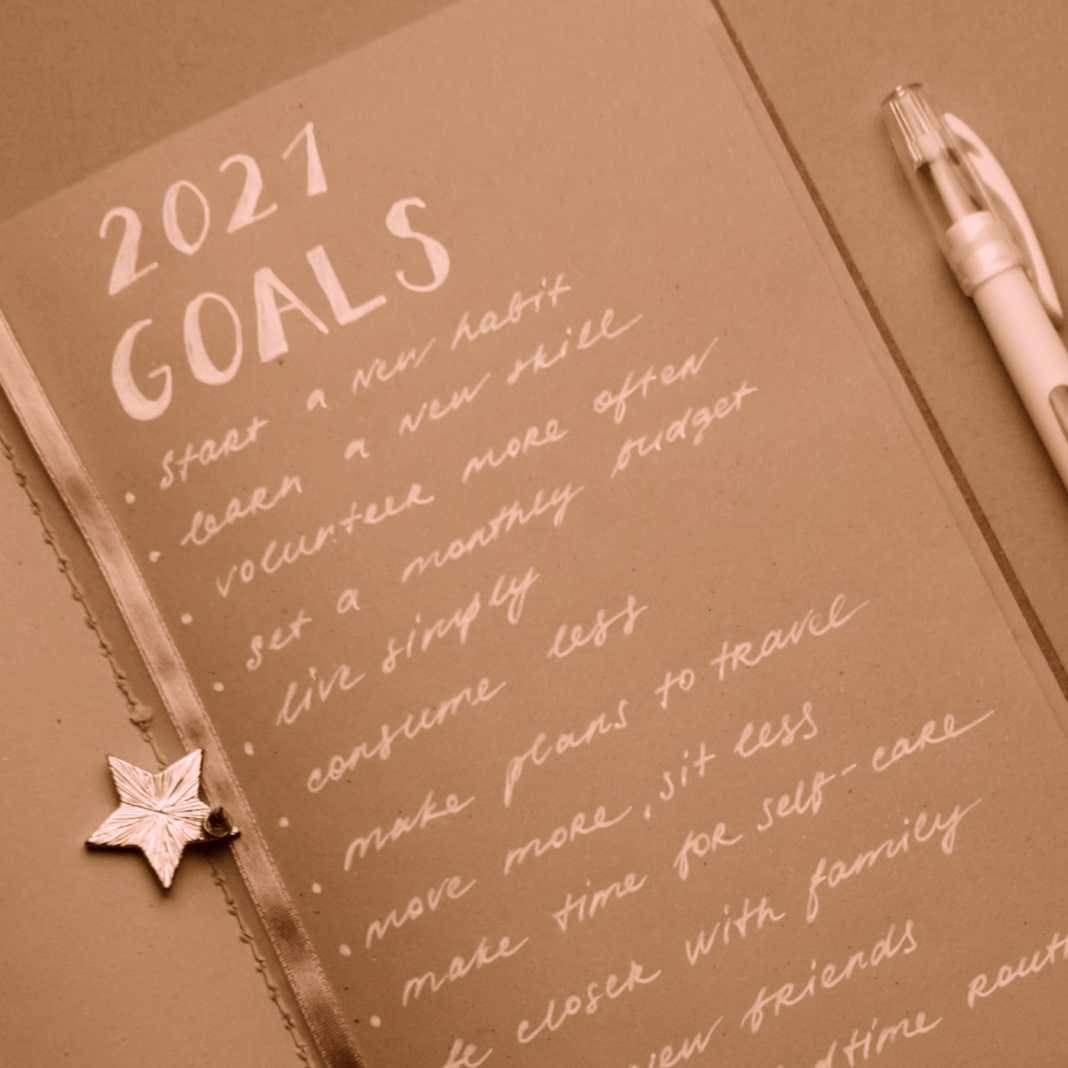 2021
GOALS
• start a new habit
• learn a new skill
• volunteer more often
• set a monthly budget
• live simply
• consume less
• make plans to travel
• move more, sit less
• make time for self-care
be closer with family
new friends